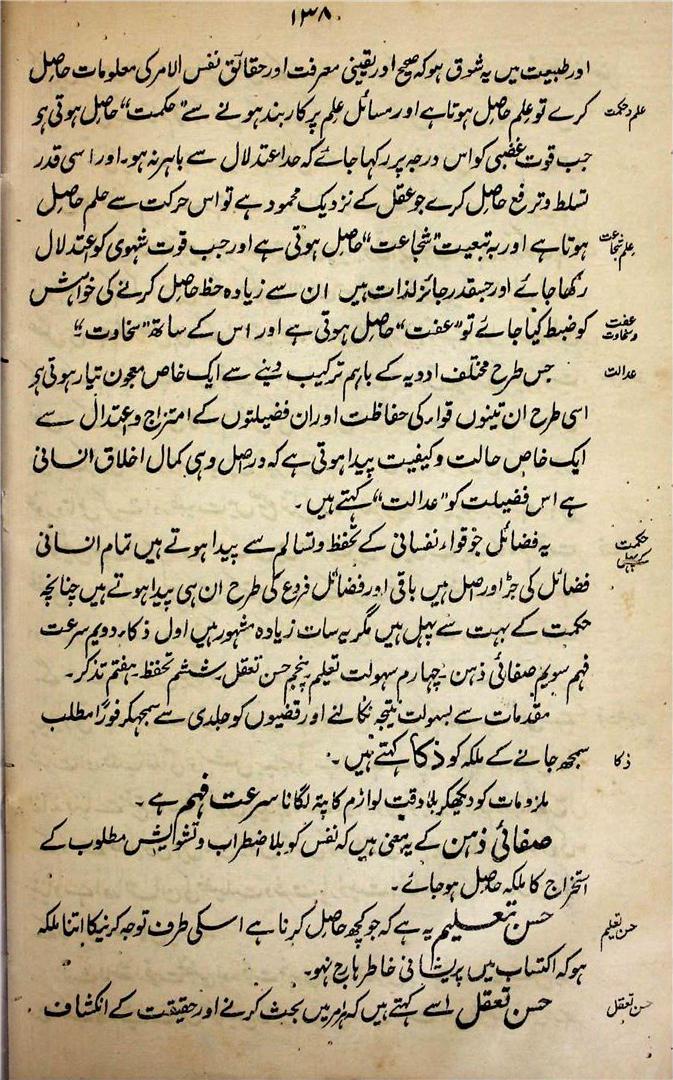 ۱۳۸
اور طبیعت میں یہ شوق ہو کہ صحیح اور یقینی معرفت اور حقائق نفس الامر کی معلومات حاصل
علم و حکمت
کرے تو علم حاصل ہوتا ہے اور مسائل علم پر کاربند ہونے سے "حکمت" حاصل ہوتی ہو
جب قوت غضبی کو اس درجہ پر رکہا جائے کہ حد اعتدلال سے باہر نہ ہو۔ اور اسی قدر
تسلط و ترفع حاصل کرے جو عقل کے نزدیک محمود ہے تو اس حرکت سے حلم حاصل
حلم شجاعت
ہوتا ہے اور بہ تبعیت "شجاعت" حاصل ہوتی ہے اور جب قوت شہوی کو اعتدلال
رکھا جائے اور جسقدر جائز لذات ہیں ان سے زیادہ حظ حاصل کرنے کی خواہش
عفت و سخاوت
کو ضبط کیا جائے تو "عفت" حاصل ہوتی ہے اور اس کے ساتھ "سخاوت"
عدالت
جس طرح مختلف ادویہ کے باہم ترکیب دینے سے ایک خاص معجون تیار ہوتی ہو
اسی طرح ان تینوں قواء کی حفاظت اور ان فضیلتوں کے امتزاج و اعتدال سے
ایک خاص حالت و کیفیت پیدا ہوتی ہے کہ دراصل وہی کمال اخلاق انسانی
ہے اس فضیلت کو "عدالت" کہتے ہیں۔
حکمت کے پہل
یہ فضائل جو قواء نفسانی کے تحفظ و تسالم سے پیدا ہوتے ہیں تمام انسانی
فضائل کی جڑ اور اصل ہیں باقی اور فضائل فروع کی طرح ان ہی پیدا ہوتے ہیں چنانچہ
حکمت کے بہت سے پہل ہیں مگر یہ سات زیادہ مشہور ہیں اول ذکاء دویم سرعت
فہم سویم صفائی ذہن۔ چہارم سہولت تعلیم پنجم حسن تعقل۔ ششم تحفظ۔ ہفتم تذکر۔
مقدمات سے بسہولت نتیجہ نکالنے اور قضیوں کو جلدی سے سمجہکر فوراً مطلب
ذکا
سمجھ جانے کے ملکہ کو ذکا کہتے ہیں۔
ملزومات کو دیکھکر بلادقت لوازم کا پتہ لگانا سرعت فہم ہے۔
صفائی ذہن کے یہ معنی ہیں کہ نفس کو بلا اضطراب و تشوایش مطلوب کے
استخراج کا ملکہ حاصل ہو جائے۔
حسن تعلیم
حسن تعلیم یہ ہے کہ جو کچھ حاصل کرنا ہے اسکی طرف توجہ کرنیکا اتنا ملکہ
ہو کہ اکتساب میں پریشانی خاطر ہارج نہو۔
حسن تعقل
حسن تعقل اسے کہتے ہیں کہ ہر امر میں بحث کرنے اور حقیقت کے انکشاف